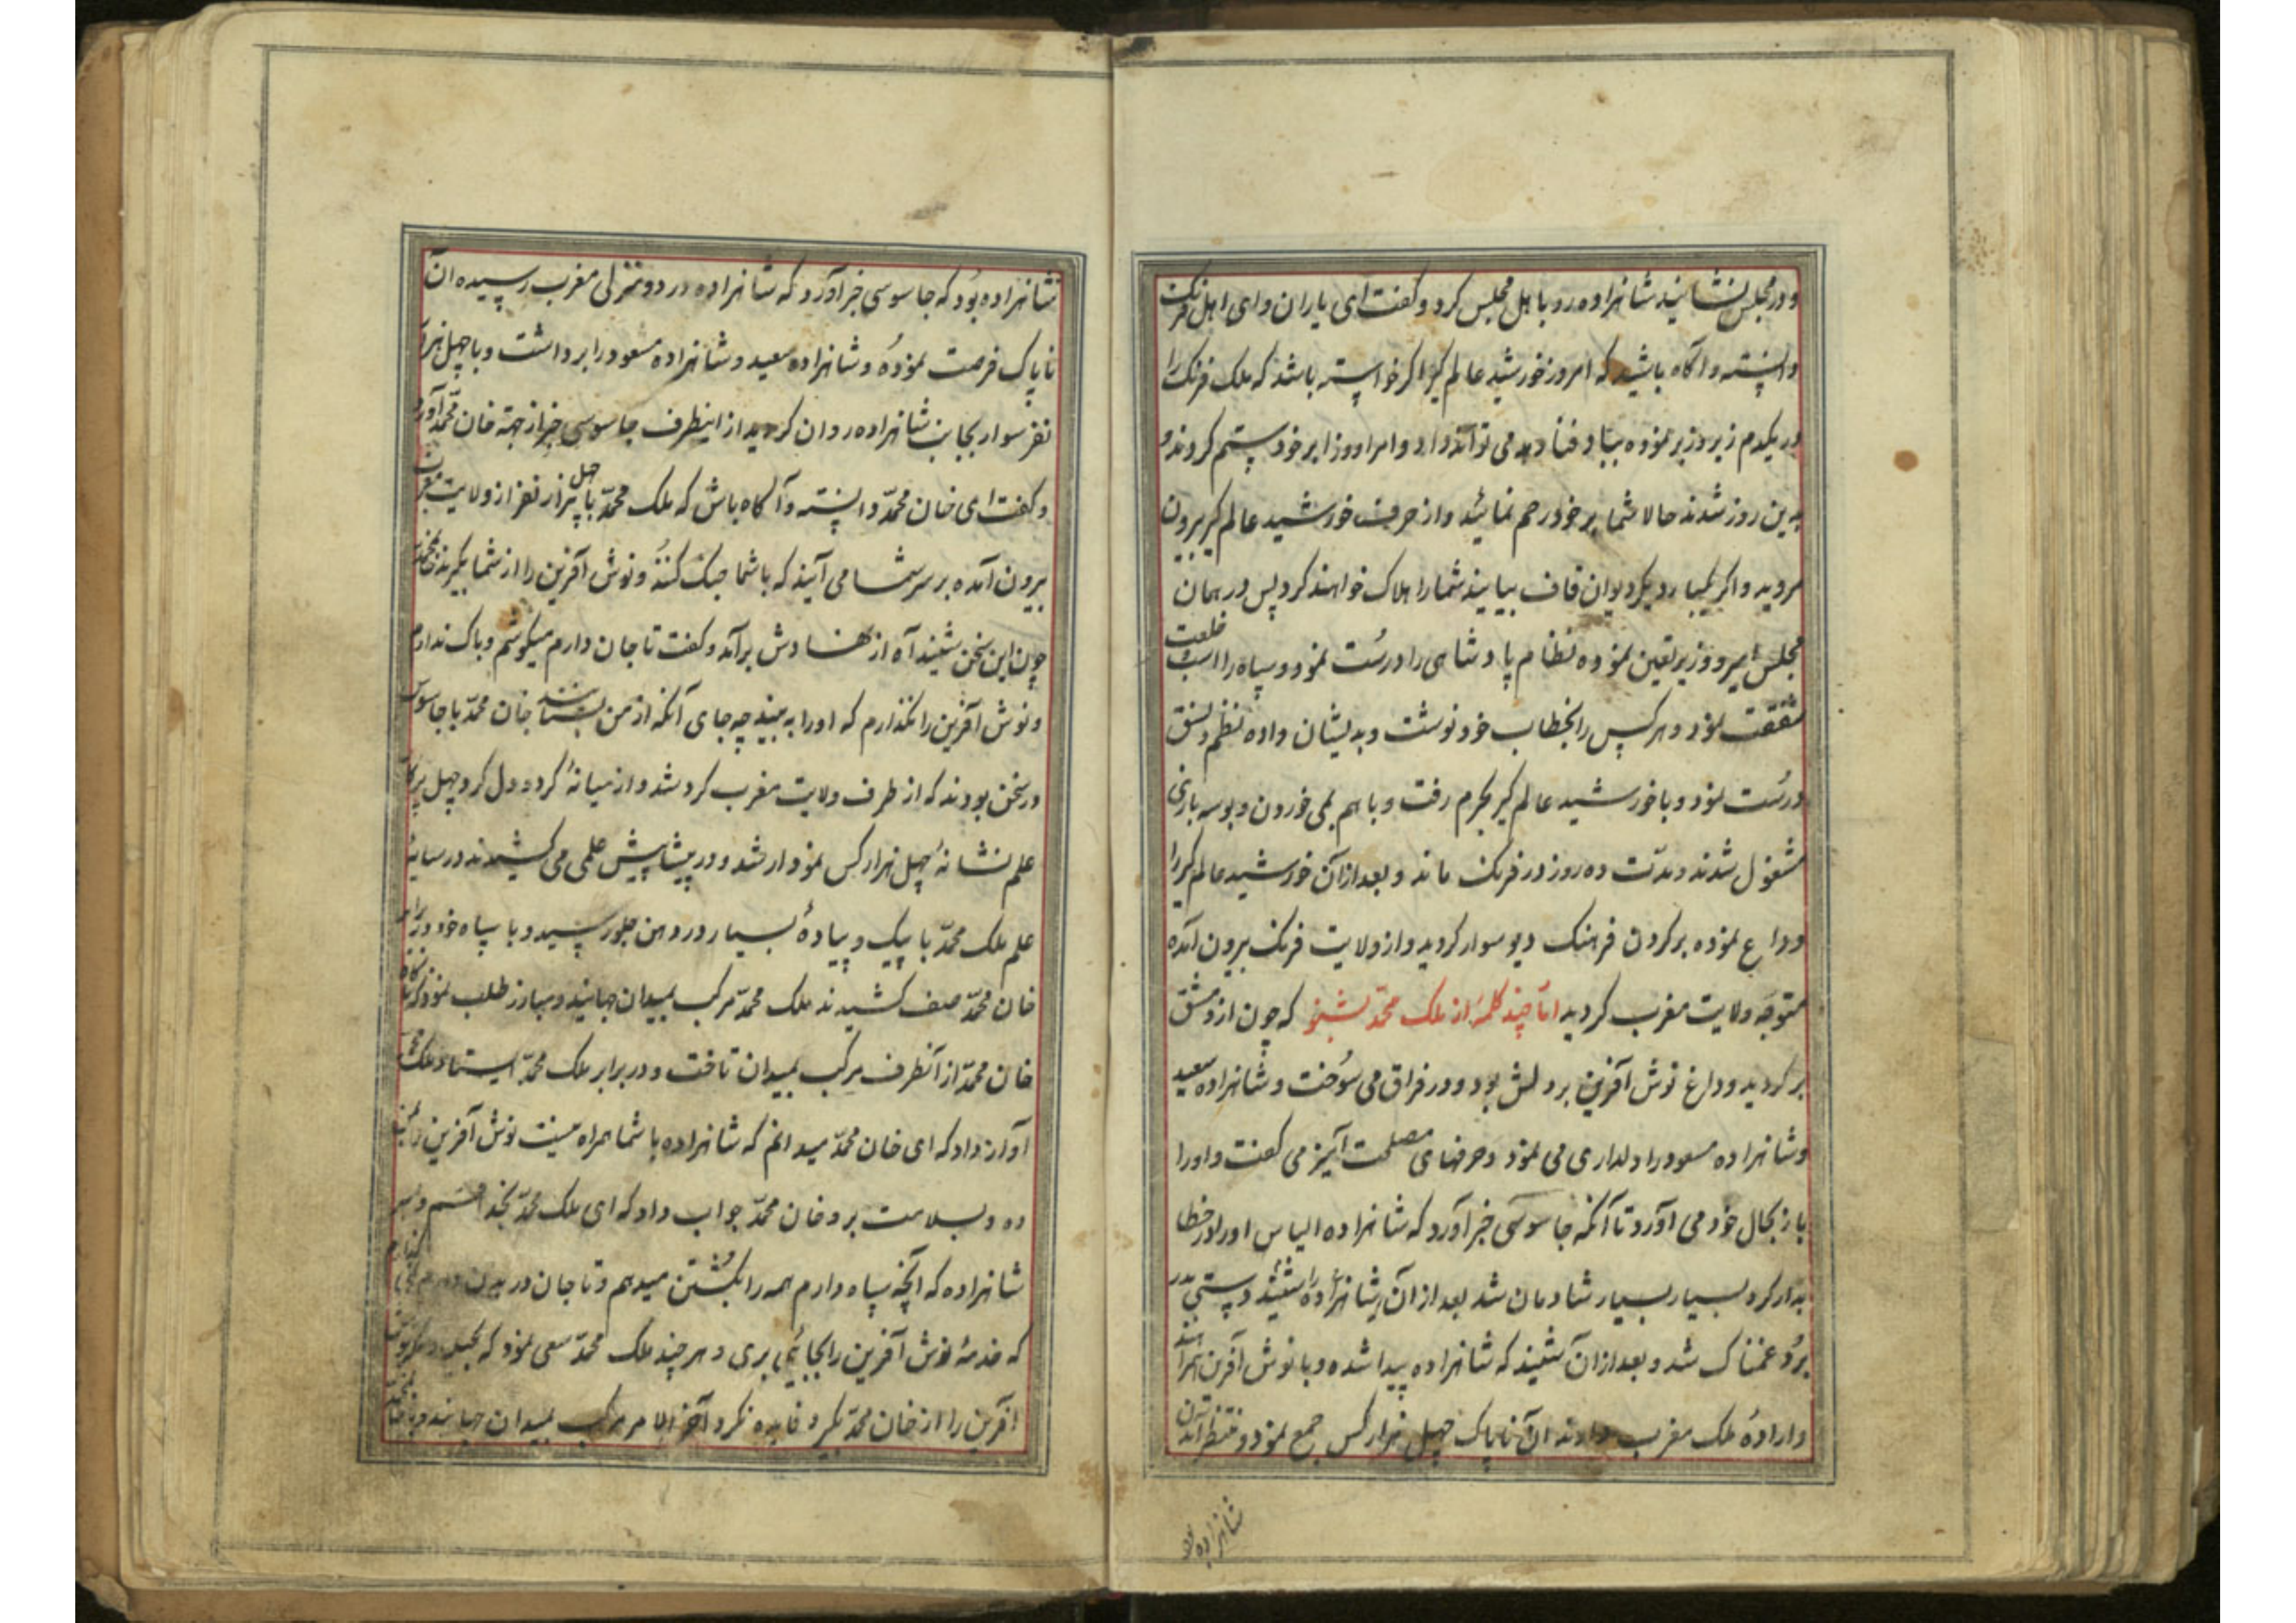 و در مجلس نشانید شاهزاده رو باهل مجلس کرد و گفت ای یاران و ای اهل فرنگ
دانسته و آگاه باشید که امروز خورشید عالم گیر اگر خواسته باشد که ملک فرنک را
در یکدم زیر و زبر نموده بباد فنا دهد می تواند و امرا و وزرا بر خود ستم کردند و
به این روز شدند حالا شما بر خود رحم نمائید و از حرف خورشید عالم گیر بیرون
مروید و اگر یکبار دیگر دیوان قاف بیایند شما را هلاک خواهند کرد پس در همان
مجلس امیر و وزیر تعین نموده نظام پادشاهی را درست نمود و سپاه را اسب و خلعت
شفقت نمود و هر کس را بخطاب خود نوشت و بدیشان داده نظم و نسق
درست نمود و با خورشید عالم گیر بحرم رفت و با هم بمی خوردن و بوسه بازی
مشغول شدند و مدت ده روز در فرنک ماند و بعد از آن خورشید عالم گیر را
وداع نموده بر گردن فرهنک دیو سوار گردید و از ولایت فرنک بیرون آمده
متوجه ولایت مغرب گردید اما چند کلمه از ملک محمد بشنو که چون از دمشق
بر گردید و داغ نوش آفرین بر دلش بود و در فراق می سوخت و شاهزاده سعید
و شاهزاده مسعود را دلداری می نمود و حرفهای مصلحت آمیز می گفت و او را
باز بحال خود می آورد تا آنکه جاسوسی خبر آورد که شاهزاده الیاس او را در خطا
بدار کرد بسیار بسیار شادمان شد بعد از آن شاهزاده را شنید و پستی پدر
برد غمناک شد و بعد از آن شنید که شاهزاده پیدا شده و با نوش آفرین همراهند
و اراده ملک مغرب دارند آن ناپاک چهل هزار کس جمع نمود و منتظر آمدن
شاهزاده بود
شاهزاده بود که جاسوسی خبر آورد که شاهزاده در دو منزلی مغرب رسیده آن
ناپاک فرصت نموده و شاهزاده سعید و شاهزاده مسعود را برداشت و با چهل هزار
نفر سوار بجانب شاهزاده روان گردید از اینطرف جاسوسی خبر از جهة خان محمد آورد
و گفت ای خان محمد دانسته و آگاه باش که ملک محمد با چهل هزار نفر از ولایت مغرب
بیرون آمده بر سر شما می آیند که با شما جنک کنند و نوش آفرین را از شما بگیرند خان محمد
چون این سخن شنید آه از نهادش برآمد و گفت تا جان دارم میکوشم و باک ندارم
و نوش آفرین را نگذارم که او را به بیند چه جای آنکه از من بستانند خان محمد با جاسوس
در سخن بودند که از طرف ولایت مغرب گرد شد و از میانه گرد دل گرد چهل
علم نشانه چهل هزار کس نمودار شد و در پیشاپیش علمی می کشیدند در سایه
علم ملک محمد با پیک و پیاده بسیار در دهن جلو رسید و با سپاه خود در برابر
خان محمد صف کشیدند ملک محمد مرکب بمیدان جهانید و مبارز طلب نمود که ناگاه
خان محمد از آنطرف مرکب بمیدان تاخت و در برابر ملک محمد ایستاد ملک محمد
آواز داد که ای خان محمد میدانم که شاهزاده با شما همراه نیست نوش آفرین را بمن
ده و بسلامت برو خان محمد جواب داد که ای ملک محمد بخدا قسم و بسر
شاهزاده که آنچه سپاه دارم همه را بکشتن میدهم و تا جان در بدن دارم نمی گذارم
که خدمه نوش آفرین را بجائی بری و هر چند ملک محمد سعی نمود که بحیله نوش
آفرین را از خان محمد بگیرد فایده نکرد آخر الامر مرکب بمیدان جهانید و با خان محمد